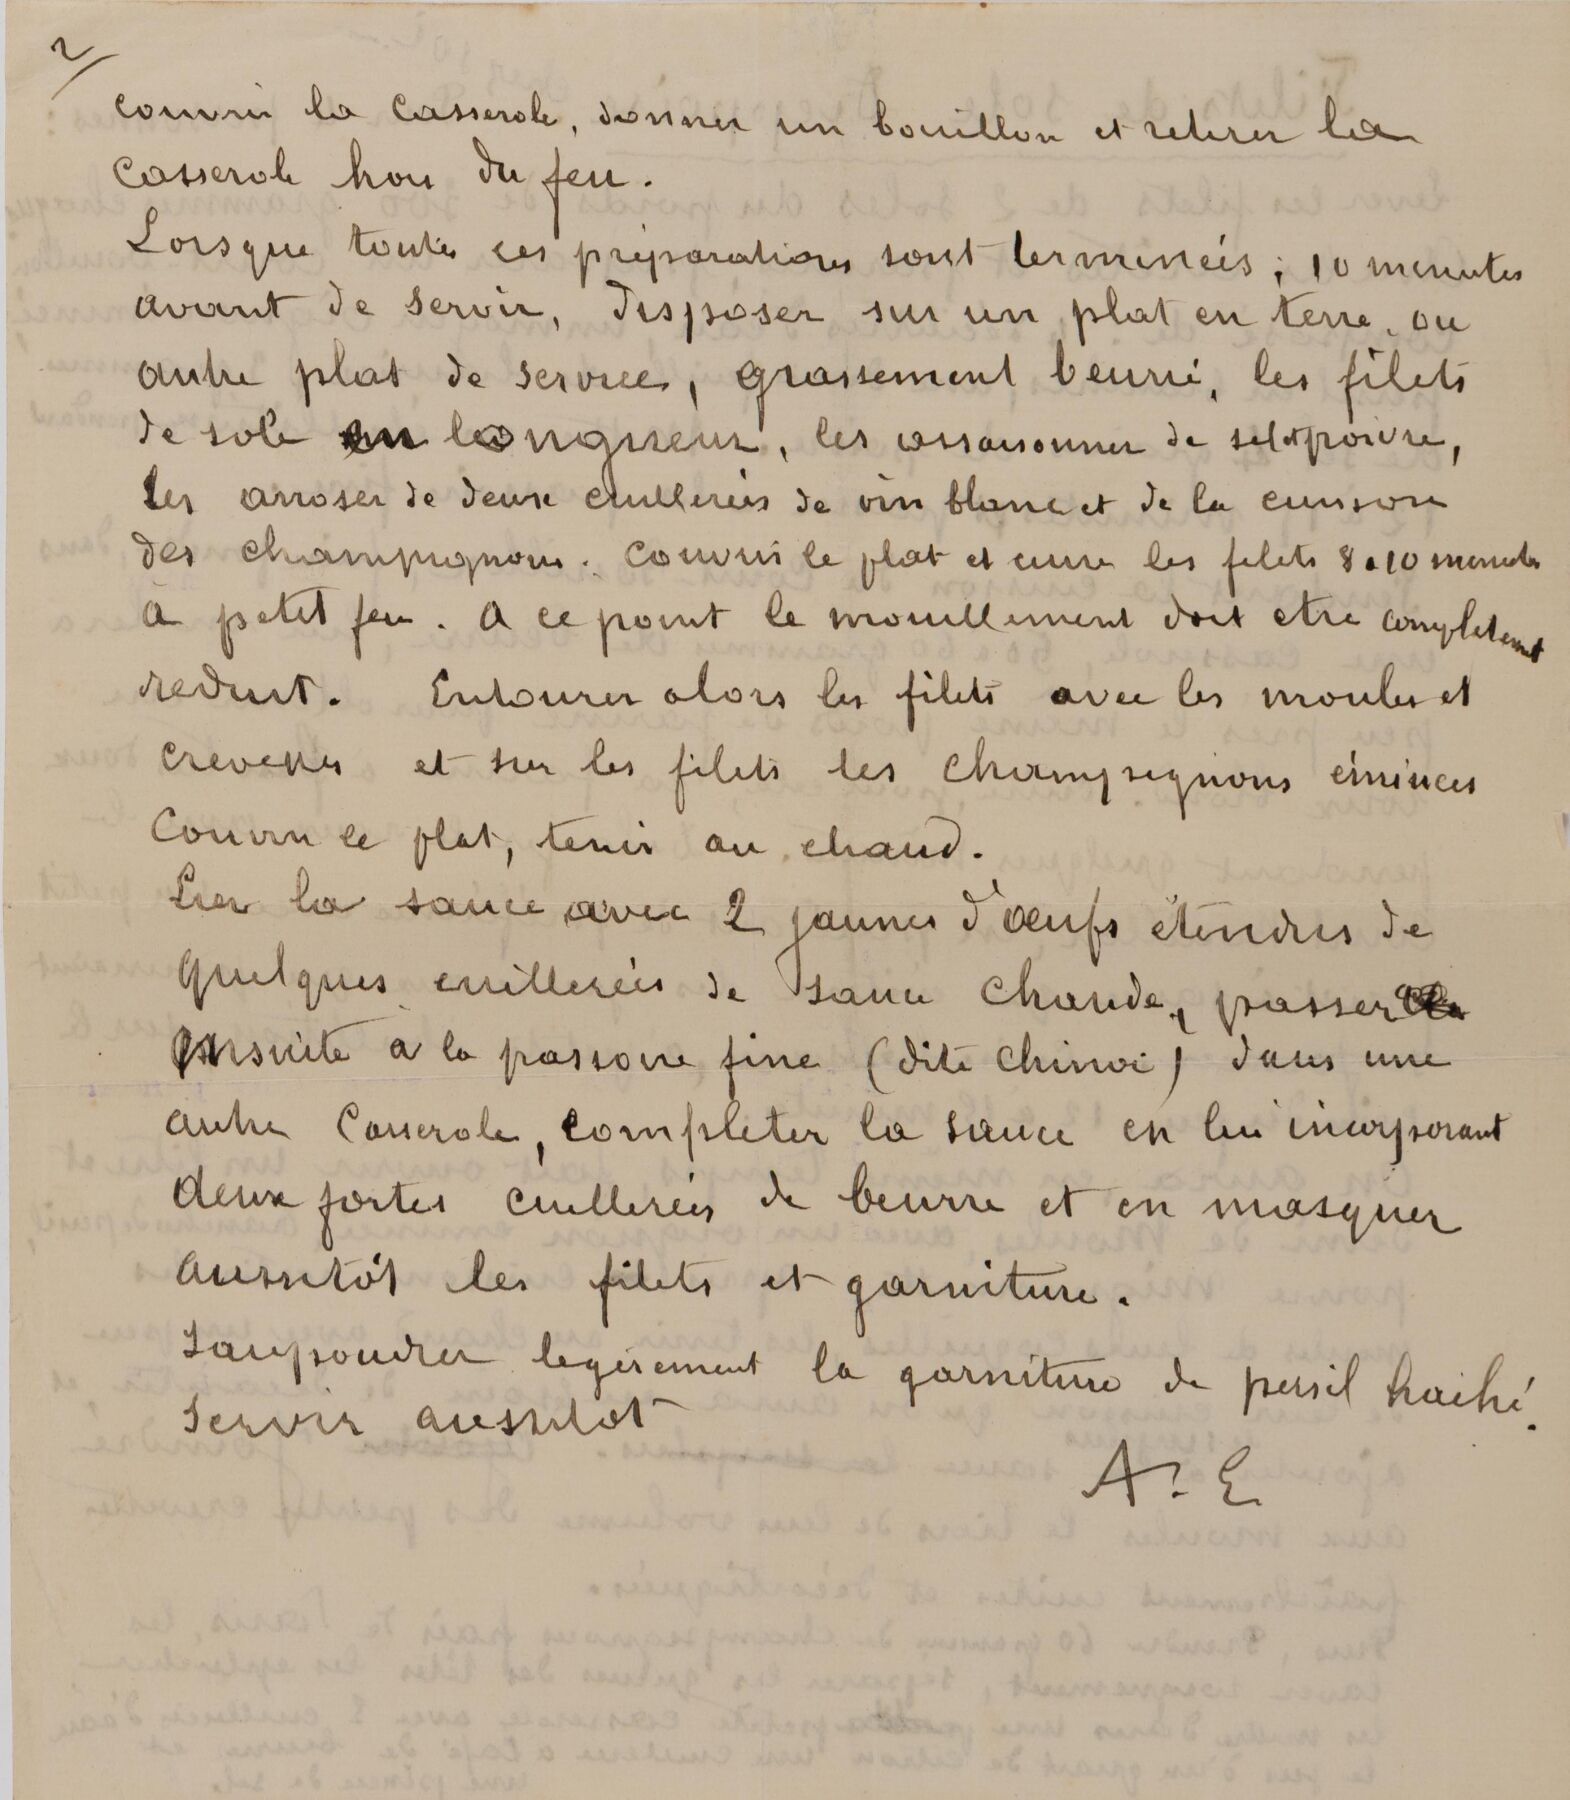 2/
couvrir la casserole, donner un bouillon et retirer la
casserole hors du feu.
Lorsque toutes ces préparations sont terminées ; 10 minutes
avant de servir, disposer sur un plat en terre, ou
autre plat de service, grassement beurré, les filets
de sole en longueur, les assaisonner de sel et poivre,
les arroser de deux cuillerées de vin blanc et de la cuisson
des champignons. Couvrir le plat et cuire les filets 8 à 10 minutes
à petit feu. A ce point le mouillement doit etre completement
reduit. Entourer alors les filets avec les moules et
crevettes et sur les filets les champignons émincés
Couvrir le plat, tenir au chaud.
Lier la sauce avec 2 jaunes d'œufs étendus de
quelques cuillerées de sauce chaude, passer
ensuite à la passoire fine (dite chinoi) dans une
autre casserole, completer la sauce en lui incorporant
deux fortes cuillerées de beurre et en masquer
aussitôt les filets et garniture.
Saupoudrer legèrement la garniture de persil haché.
Servir aussitot
A. E.